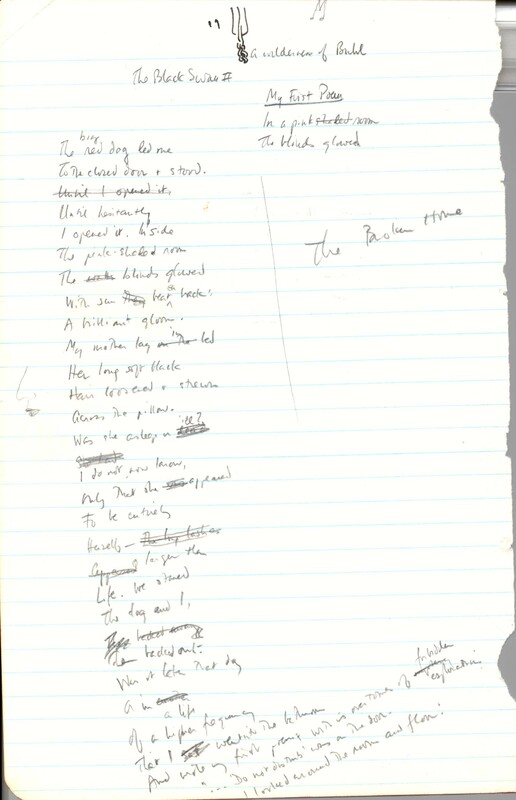 19
a wilderness of Buhl
The Black Swan II
My First Poem
In a pink shaded room
The blinds glowed
The Broken Home
The big red dog led me
To the closed door & stood.
Until I opened it.
Until hesitantly
I opened it. Inside
The pink-shaded room
The blinds glowed
With sun beat back:
A brilliant gloom.
My mother lay on the in bed
Her long soft black
Hair loosened & strewn
Across the pillow.
Was she asleep or ill?
I do not now know,
Only that she appeared
To be entirely
Herself— The long lashes
Appeared larger than
Life. We stared
The dog and I,
backed out.
Was it later that day
a life
Of a higher frequency
That I went into the bathroom
And wrote my first poem, with its overtones of forbidden
exploration:
.... 'Do not disturb' was on the door.
I looked around the room and floor!